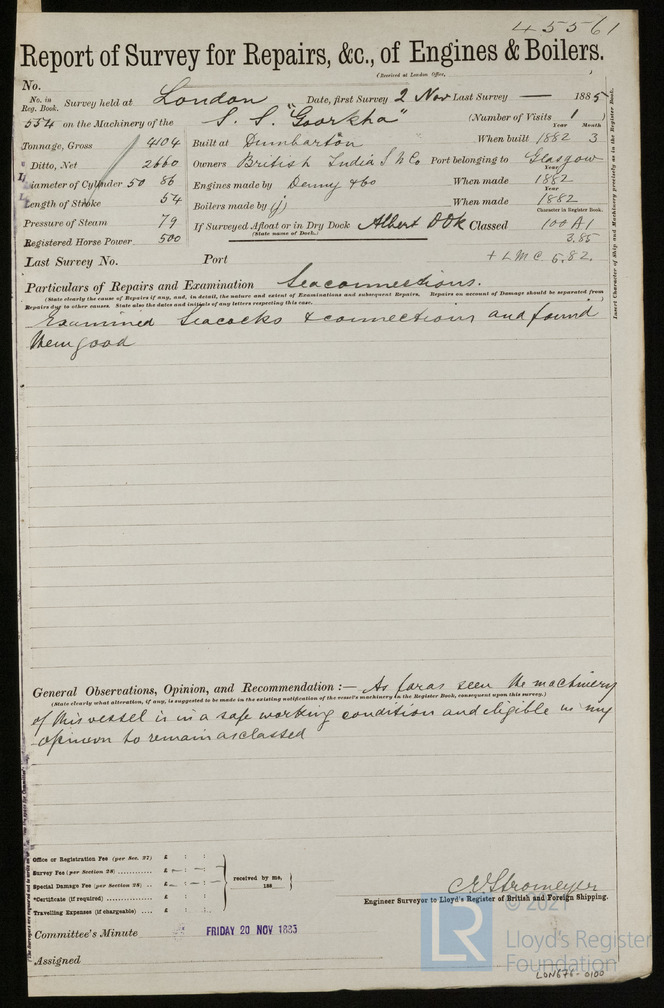 45561
Report of Survey for Repairs, &c., of Engines & Boilers.
(Received at London Office,
No.
No. in Reg. Book. Survey held at London Date, first Survey 2 Nov Last Survey — 1885
554 on the Machinery of the S. S. "Goorkha" (Number of Visits 1
Year Month
Tonnage, Gross 4104 Built at Dumbarton When built 1882 3
" Ditto, Net 2660 Owners British India S N Co Port belonging to Glasgow
Year
Diameter of Cylinder 50 86 Engines made by Denny & Co When made 1882
Year
Length of Stroke 54 Boilers made by When made 1882
Character in Register Book.
Pressure of Steam 79 If Surveyed Afloat or in Dry Dock Albert DOk Classed 100 A1
(State name of Dock.) 3.85
Registered Horse Power 500
Last Survey No. Port + L M C 5.82.
Particulars of Repairs and Examination Seaconnections.
(State clearly the cause of Repairs if any, and, in detail, the nature and extent of Examinations and subsequent Repairs. Repairs on account of Damage should be separated from
Repairs due to other causes. State also the dates and initials of any letters respecting this case.
Examined Seacocks & connections and found
them good
Insert Character of Ship and Machinery precisely as in the Register Book.
General Observations, Opinion, and Recommendation :— As far as seen the machinery
(State clearly what alteration, if any, is suggested to be made in the existing notification of the vessel's machinery in the Register Book, consequent upon this survey.)
of this vessel is in a safe working condition and eligible in my
opinion to remain as classed
Office or Registration Fee (per Sec. 27) £ : :
Survey Fee (per Section 28) ............ £ — : — :
Special Damage Fee (per Section 28) .. £ : :
*Certificate (if required) ............ £ : :
Travelling Expenses (if chargeable) .... £ : :
received by me,
188
C E Stromeyer
Engineer Surveyor to Lloyd's Register of British and Foreign Shipping.
Committee's Minute FRIDAY 20 NOV 1885
Assigned
© 2021
LR
Lloyd's Register
Foundation
LON676-0100